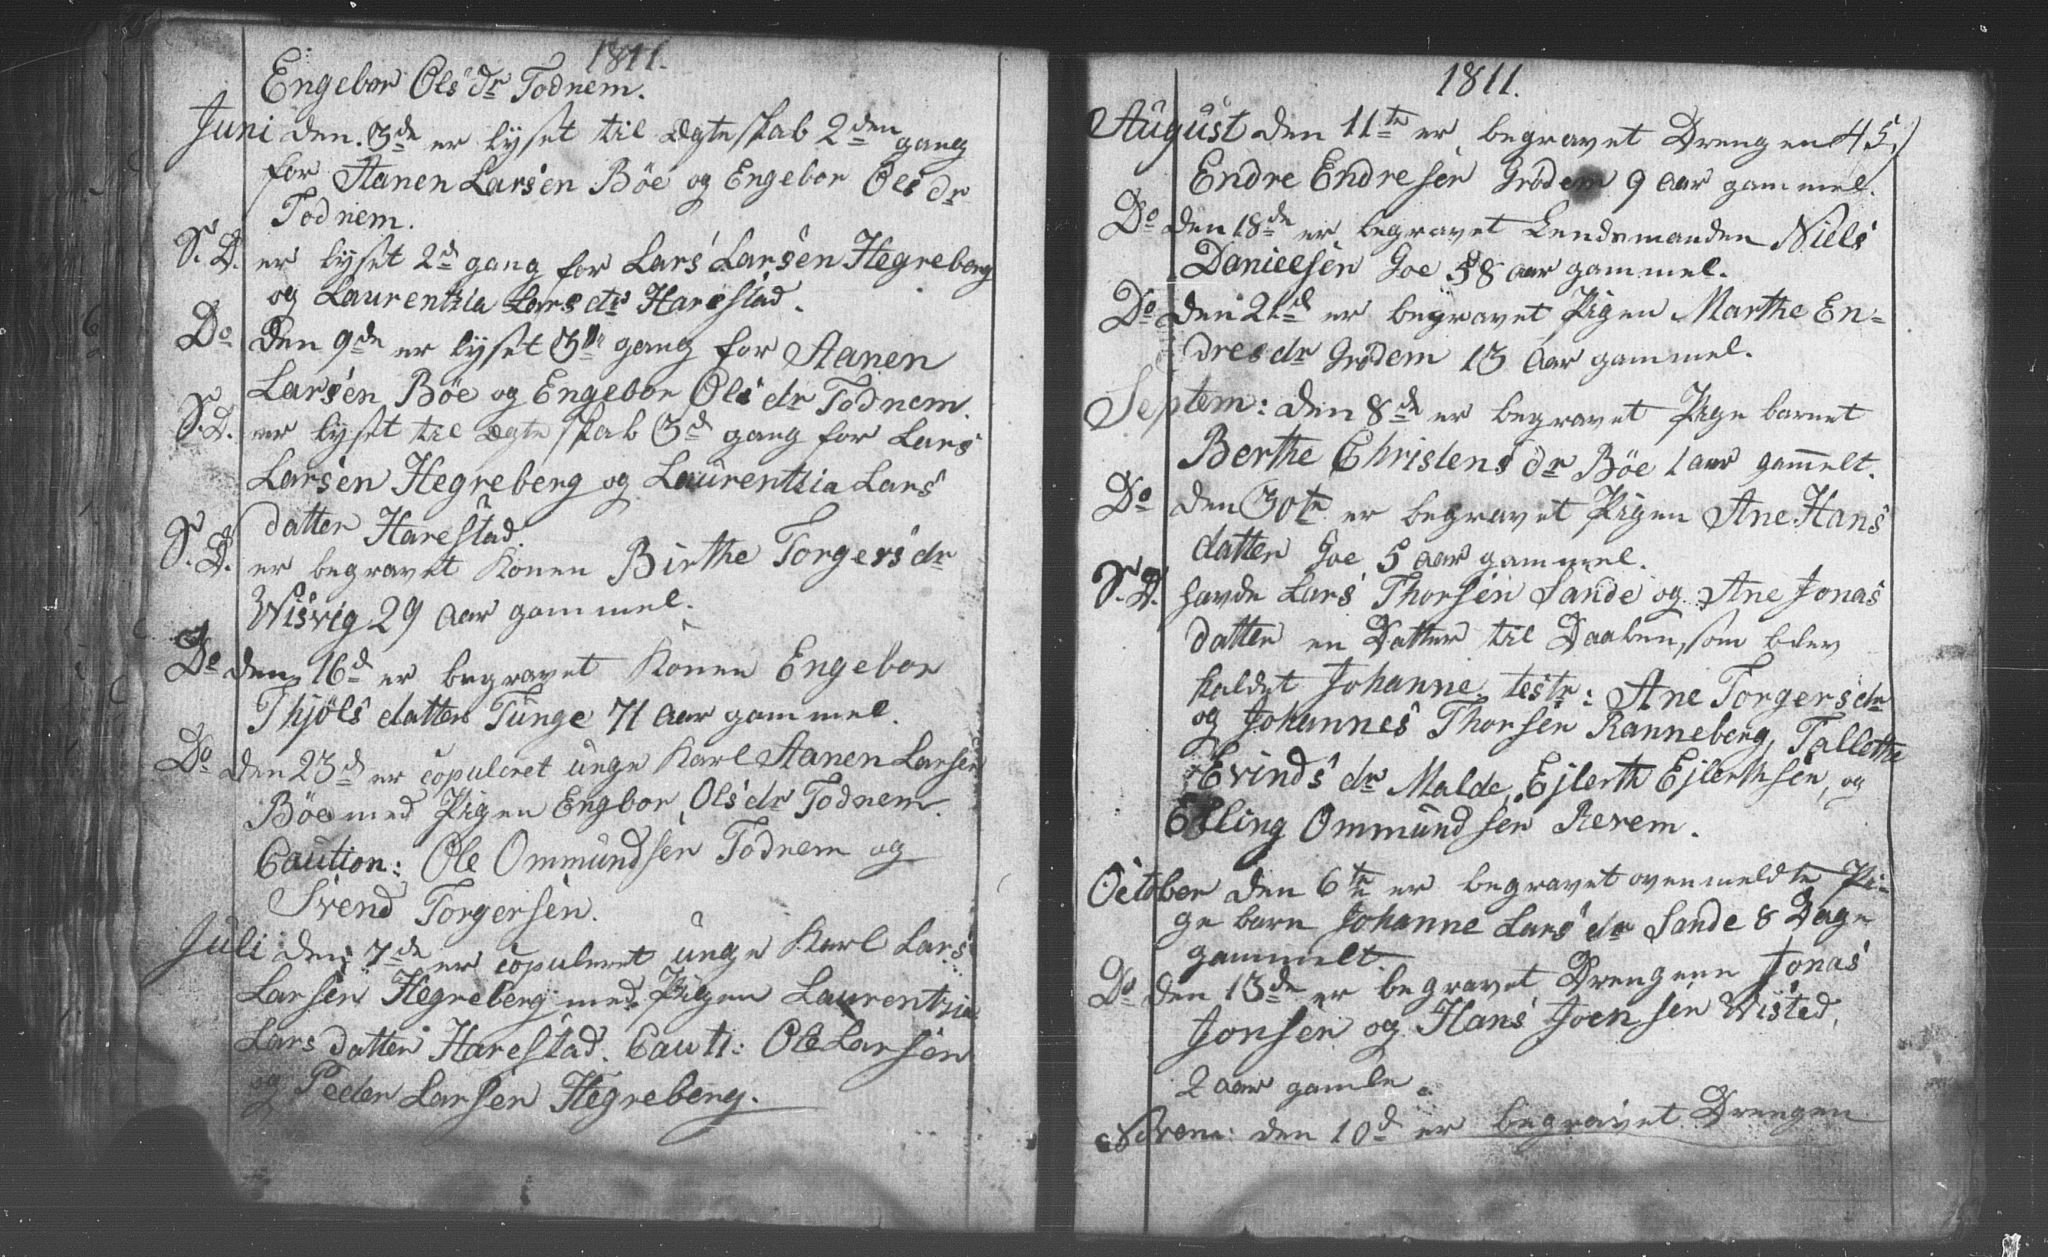 1811.
Engebor Ols dr Todnem.
Juni den 3de er lyset til Ægteskab 2den gang
for Aanen Larsen Böe og Engebor Ols dr
Todnem.
S. D. er lyset 2d gang for Lars Larsen Hegreberg
og Laurentzia Lars dr Harestad.
Do den 9de er lyset 3die gang for Aanen
Larsen Böe og Engebor Ols dr Todnem.
S. D. er lyset til Ægteskab 3d gang for Lars
Larsen Hegreberg og Laurentzia Lars
datter Harestad.
S. D. er begravet Konen Birthe Torgers dr
Wisvig 29 aar gammel.
Do den 16d er begravet Konen Engebor
Thjöls datter Tunge 71 aar gammel.
Do den 23d er copuleret unge Karl Aanen Larsen
Böe med Pigen Engbor Ols dr Todnem.
Caution: Ole Ommundsen Todnem og
Svend Torgersen.
Juli den 7de er copuleret unge Karl Lars
Larsen Hegreberg med Pigen Laurentzia
Lars datter Harestad. Caut: Ole Larsen
og Peder Larsen Hegreberg.
1811.
August den 11te er begravet Drengen 45)
Endre Endresen Grödem 9 aar gammel.
Do den 18de er begravet Lendsmanden Niels
Danielsen Goe 58 aar gammel.
Do den 21d er begravet Pigen Marthe En-
dres dr Grödem 13 aar gammel.
Septem: den 8de er begravet Pige barnet
Berthe Christens dr Böe 1 aar gam̄elt.
Do den 30te er begravet Pigen Ane Hans
datter Goe 5 aar gammel.
S. D. havde Lars Thorsen Sande og Ane Jonas
datter en Datter til Daaben, som blev
kaldet Johanne. testr: Ane Torgers dr
og Johannes Thorsen Ranneberg, Tallotte
Evinds dr Malde, Ejlerth Ejlerthsen, og
Elling Ommundsen Rerem.
October den 6te er begravet ovenmeldte Pi-
ge barn Johanne Lars dr Sande 8 Dage
gammelt.
Do den 13de er begravet Drengene Jonas
Jonsen og Hans Joensen Wisted,
2 aar gamle.
Novem: den 10d er begravet Drengen